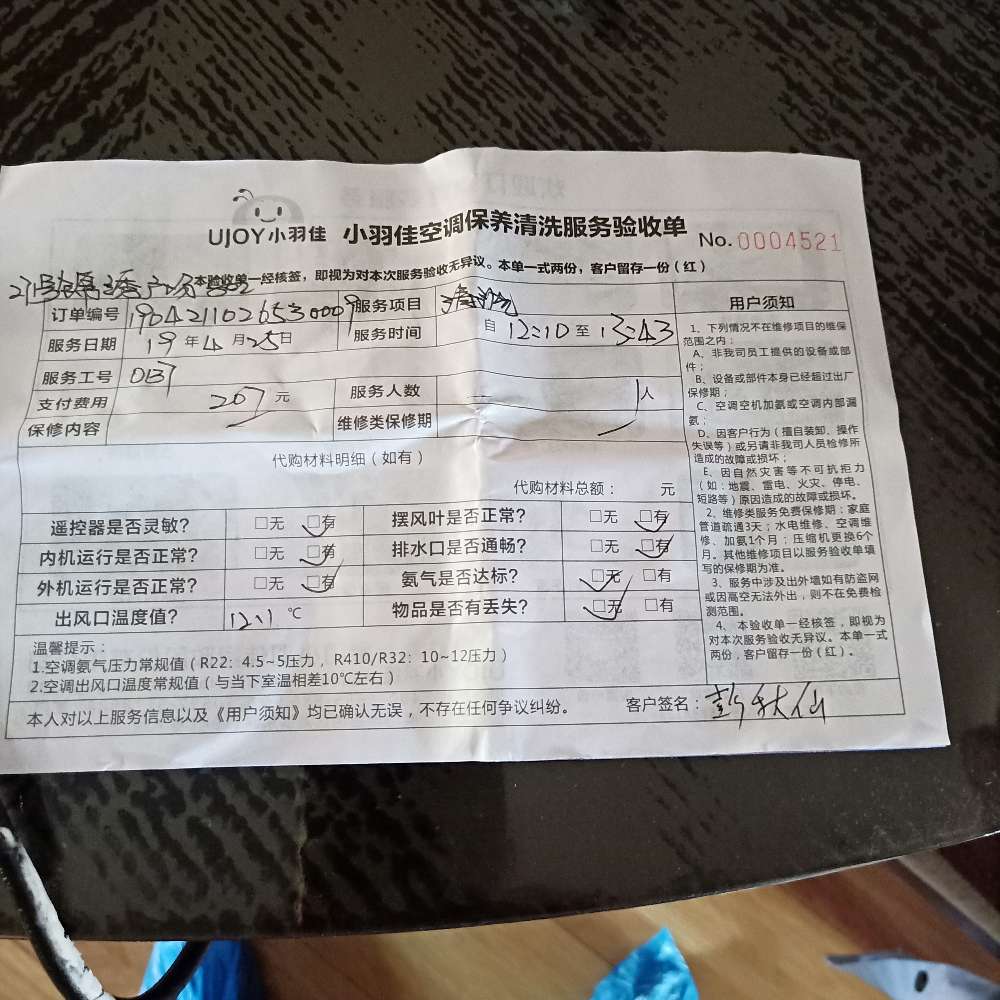 UJOY小羽佳 小羽佳空调保养清洗服务验收单 No. 0004521
本验收单一经核签，即视为对本次服务验收无异议。本单一式两份，客户留存一份（红）
订单编号 服务项目 清洗
服务日期 19年4月25日 服务时间 自 12:10 至 13:43
服务工号
支付费用 207 元 服务人数 1 人
保修内容 维修类保修期
代购材料明细（如有）
代购材料总额： 元
遥控器是否灵敏? □无 □有 摆风叶是否正常? □无 □有
内机运行是否正常? □无 □有 排水口是否通畅? □无 □有
外机运行是否正常? □无 □有 氨气是否达标? □无 □有
出风口温度值? 12.1 ℃ 物品是否有丢失? □无 □有
温馨提示：
1.空调氨气压力常规值（R22：4.5~5压力，R410/R32：10~12压力）
2.空调出风口温度常规值（与当下室温相差10℃左右）
本人对以上服务信息以及《用户须知》均已确认无误，不存在任何争议纠纷。 客户签名：彭秋仙
用户须知
1、下列情况不在维修项目的维保
范围之内：
A、非我司员工提供的设备或部
件；
B、设备或部件本身已经超过出厂
保修期；
C、空调空机加氨或空调内部漏
氨；
D、因客户行为（擅自装卸、操作
失误等）或另请非我司人员检修所
造成的故障或损坏；
E、因自然灾害等不可抗拒力
（如：地震、雷电、火灾、停电、
短路等）原因造成的故障或损坏。
2、维修类服务免费保修期：家庭
管道疏通3天；水电维修、空调维
修、加氨1个月；压缩机更换6个
月。其他维修项目以服务验收单填
写的保修期为准。
3、服务中涉及出外墙如有防盗网
或因高空无法外出，则不在免费检
测范围。
4、本验收单一经核签，即视为
对本次服务验收无异议。本单一式
两份，客户留存一份（红）。